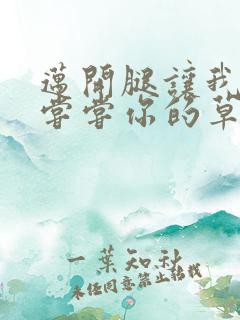 邁開腿讓我
嘗嘗你的草
一葉知秋
未经同意禁止转载